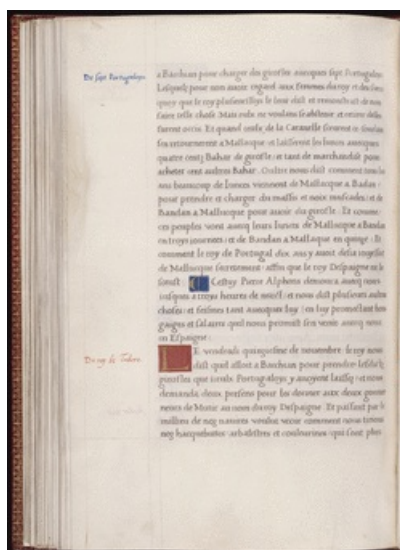 De sept Portugaloys
a Bachian pour charger du girofle auecques sept Portugaloys
Lesquelz pour non auoir regard aux femmes du roy et des siens
quoy que le roy plusieurs foys le leur dist et remonstrast de non
faire telle chose Mais eulx ne voulans se abstenir
furent occis Et quand ceulx de la Carauelle
sen retournerent a Mallucque et laisserent les boucs auecques
quatre cens Bahar de girofle et tant de marchandise pour
achepter cent autres Bahar Oultre nous dist comment tous les
ans beaucoup de Iuncs viennent de Mallacque a Badan
pour prendre et charger du massis et noix muscades et de
Bandan a Mallucque pour auoir du girofle Et comme
ces peuples vont auecq leurs Iuncs de Mallucque a Bandan
en troys iournees et de Bandan a Mallaque en quinze Et
comment le roy de Portugal dix ans y auoit desia
de Mallucque secretement affin que le roy Despaigne ne le
sceust Cestuy Pierre Alphonse demoura auecq nous
iusques a troys heures de nuict et nous dist plusieurs autres
choses et feismes tant auecques luy en luy promettant bons
gaiges et salaire quil nous promist sen venir auecq nous
en Espaigne
Du roy de Tadore
LE vendredi quinziesme de nouembre le roy nous
dist quil alloit a Bachian pour prendre lesdictz
girofles que iceulx Portugaloys y auoyent laissez et nous
demanda deux presens pour les donner aux deux gouuer
neurs de Mutir au nom du roy Despaigne Et passant par le
millieu de noz nauires voulut veoir comment nous tirions
noz hacquebutes arbalestres et couleurines qui sont plus